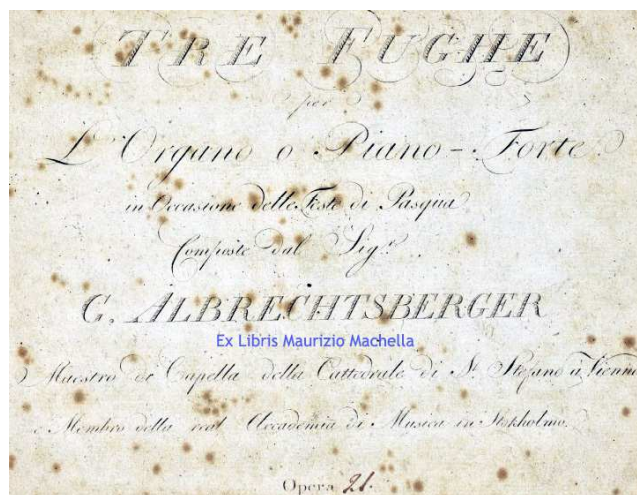 TRE FUGHE
per
L'Organo o Piano-Forte
in Occasione delle Feste di Pasqua
Composte dal Sig.r
G. ALBRECHTSBERGER
Ex Libris Maurizio Machella
Maestro di Capella della Cattedrale di St Stefano à Vienna
e Membro della real Accademia di Musica in Stokholmo.
Opera 21.